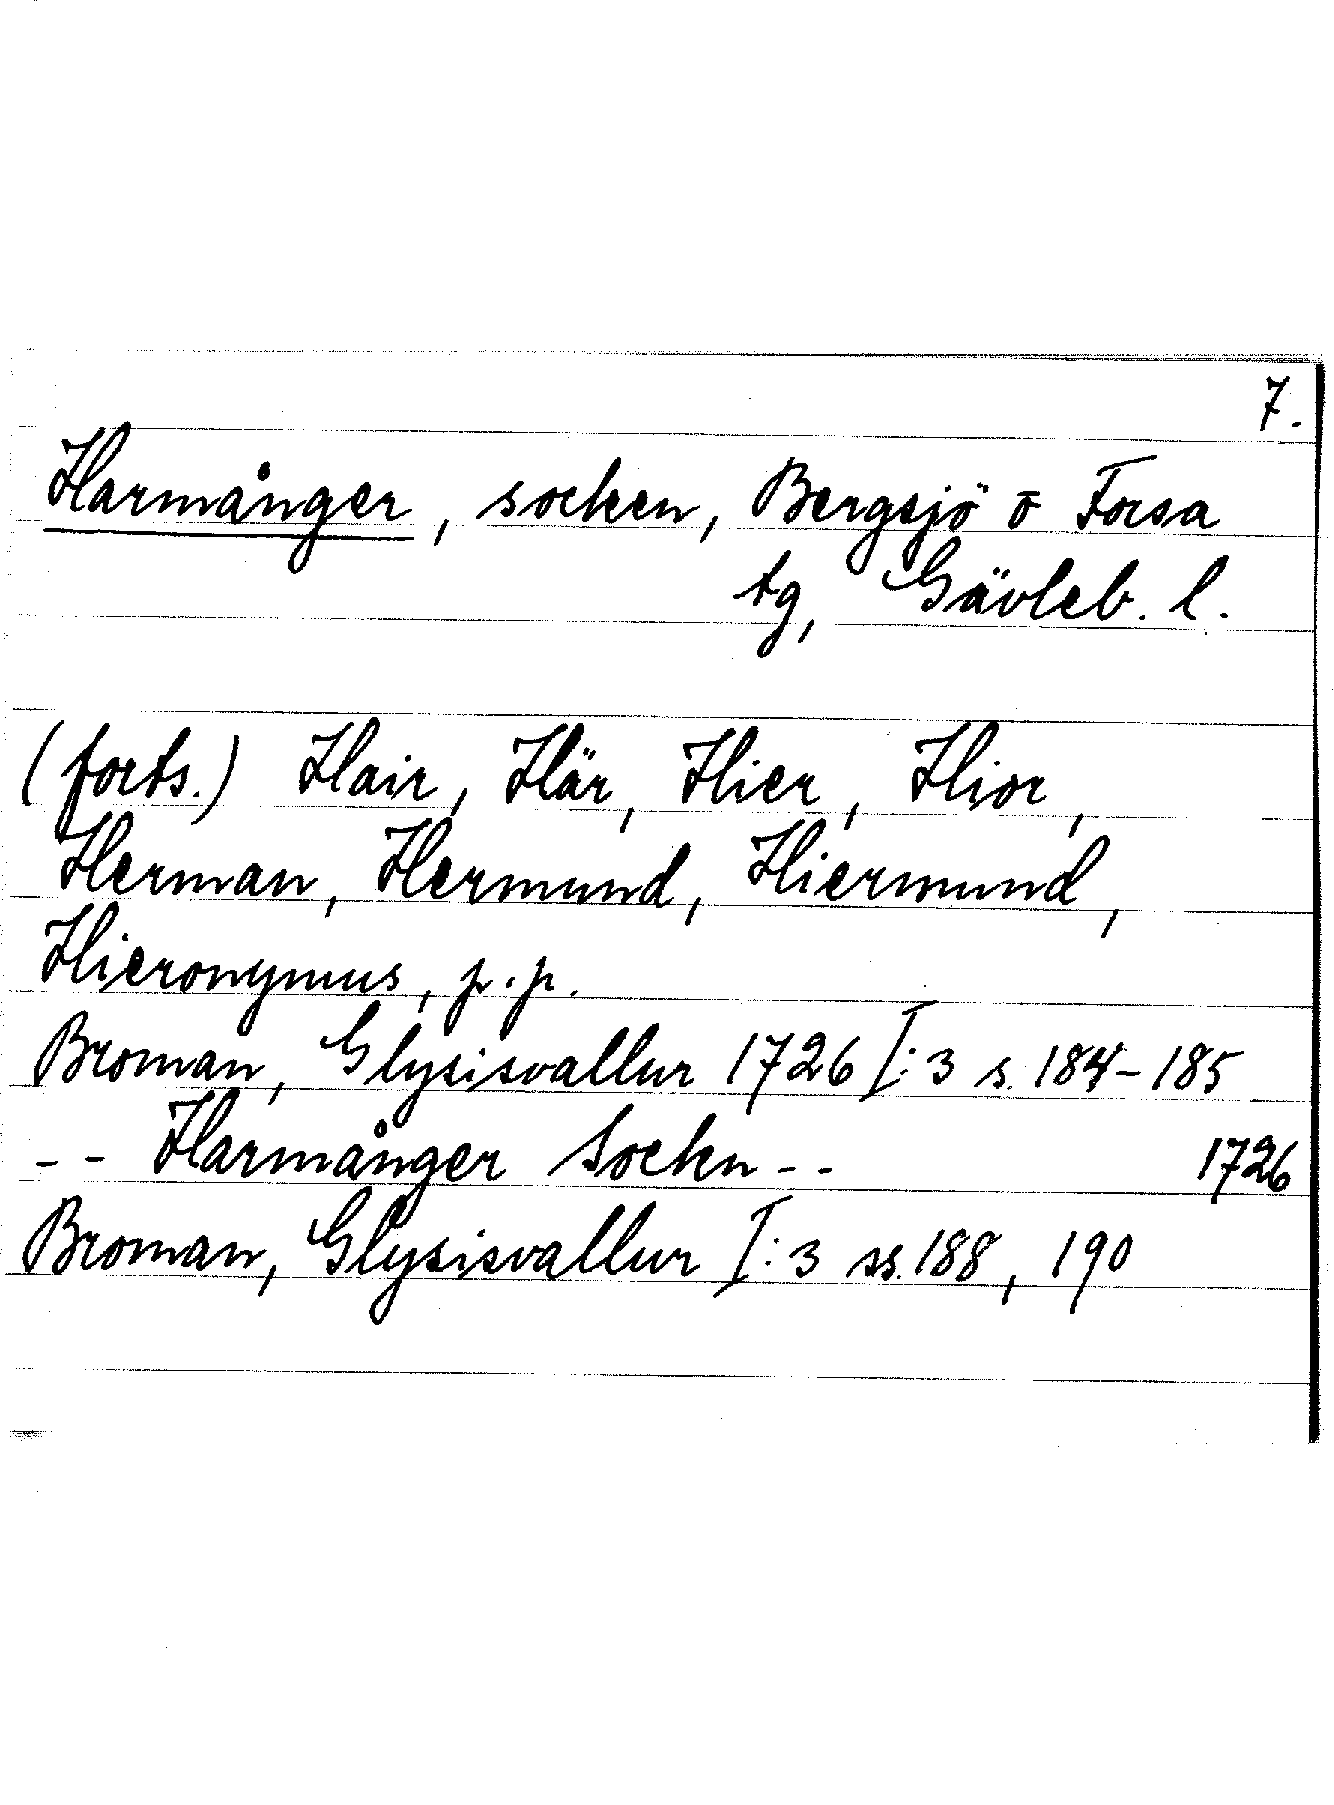 7.
Harmånger, socken, Bergsjö o Forsa
tg, Gävleb. l.
(forts.) Hair, Här, Hier, Hior,
Herman, Hermund, Hiermund,
Hieronymus, p.p.
Broman, Glysisvallur 1726 I:3 s. 184-185
-- Harmånger Sockn -- 1726
Broman, Glysisvallur I:3 ss. 188, 190